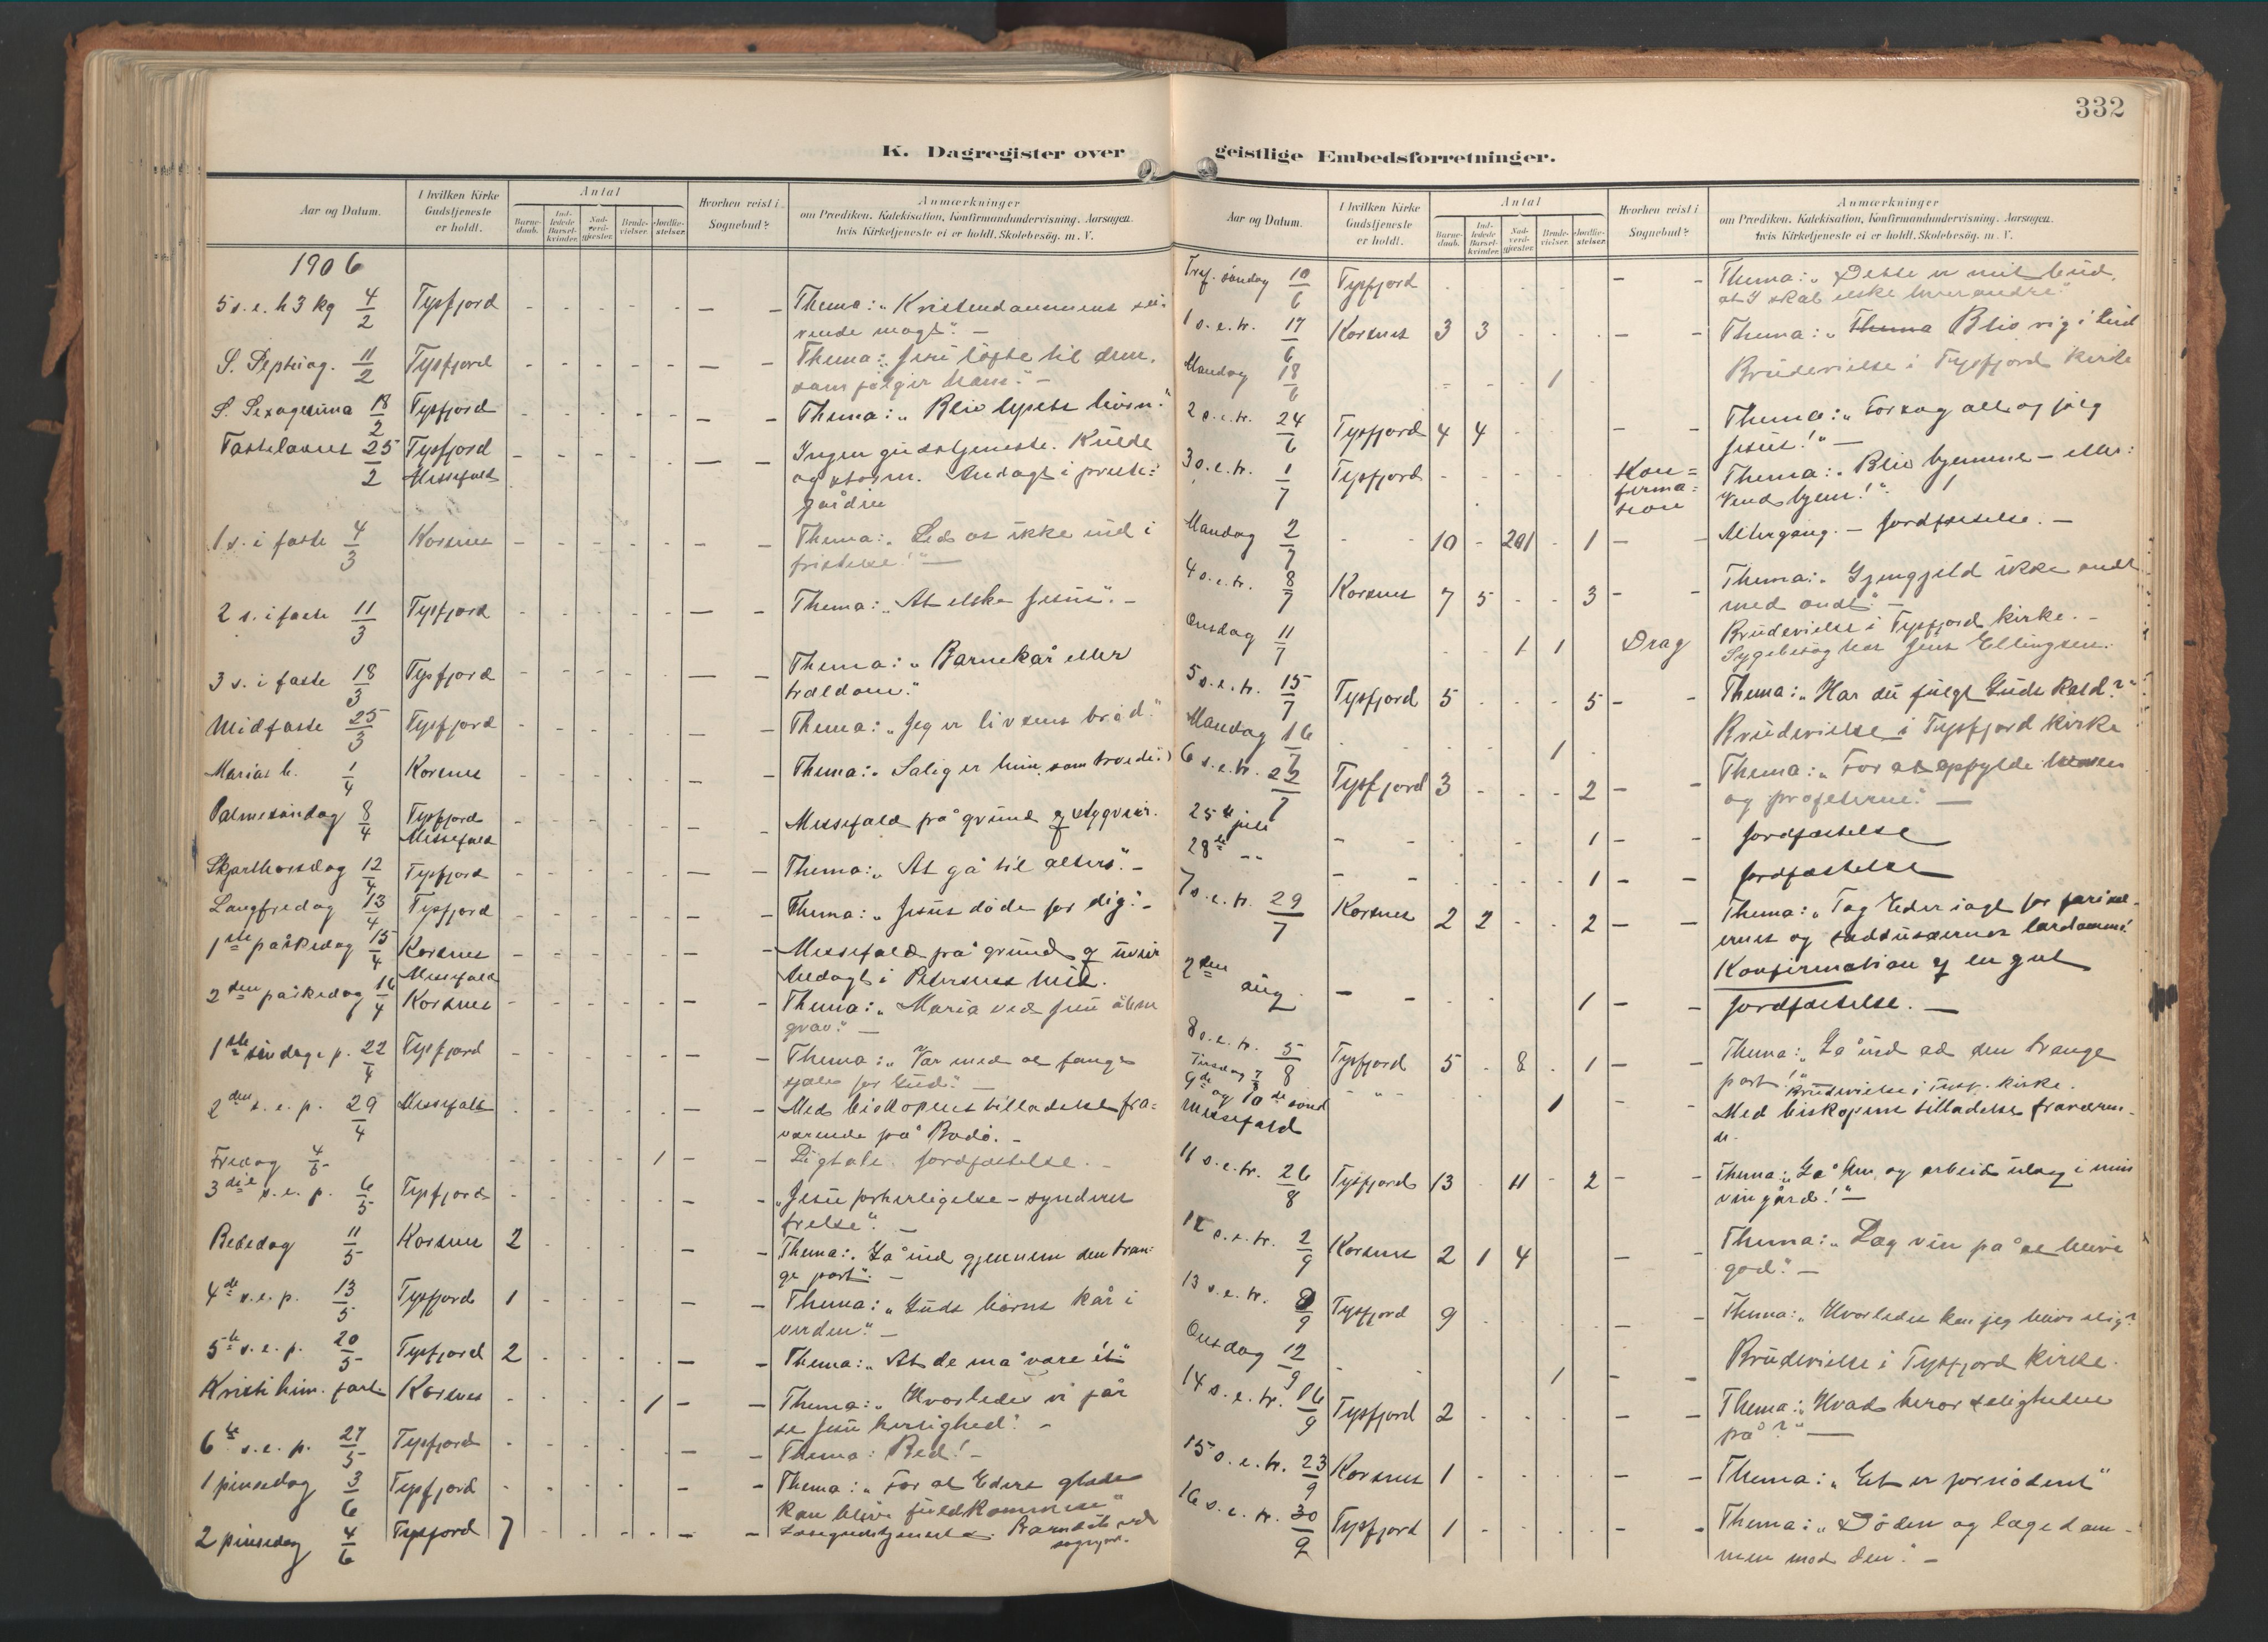 332
K. Dagregister over geistlige Embedsforretninger.
Aar og Datum.
I hvilken Kirke Gudstjeneste er holdt.
Antal
Barne-daab.
Ind-ledede Barsel-kvinder.
Nad-verd-gjester.
Brude-vielser.
Jordfæ-stelser.
Hvorhen reist i Sognebud?
Anmærkninger
om Prædiken, Katekisation, Konfirmandundervisning, Aarsagen,
hvis Kirketjeneste ei er holdt, Skolebesög, m. V.
1906
5 s. e. h 3 kg 4/2 Tysfjord - - - - - — - Thema: „Kristendommens
vende magt". —
S. Septuag. 11/2 Tysfjord - - - - - — - Thema: „Jesu löfte til dem,
som fölger ham." —
S. Sexagesima 18/2 Tysfjord - - - - - — - Thema: „Bliv lysets börn."
Fastelavns 25/2 Tysfjord - - - - - — - Ingen gudstjeneste. Kulde
Messefald og storm. Andagt i preste-
gården
1 s. i faste 4/3 Korsnes - - - - - — - Thema: „Led os ikke ind i
fristelse!" —
2 s. i faste 11/3 Tysfjord - - - - - — - Thema: „At elske Jesus". -
3 s. i faste 18/3 Tysfjord - - - - - — - Thema: „Barnekår eller
trældom."
Midfaste 25/3 Tysfjord - - - - - — - Thema: „Jeg er livsens bröd."
Marias b. 1/4 Korsnes - - - - - — - Thema: „Salig er hun, som troede"
Palmesöndag 8/4 Tysfjord - - - - - — - Messefald på grund af uveir.
Messefald
Skjærthorsdag 12/4 Tysfjord - - - - - — - Thema: „At gå til alters". -
Langfredag 13/4 Tysfjord - - - - - — - Thema: „Jesus döde for dig". -
1ste påskedag 15/4 Korsnes - Messefald på grund af uveir
Messefald Andagt i Petersens hus.
2den påskedag 16/4 Korsnes - - - - - — - Thema: „Maria ved Jesu åbne
grav." —
1ste söndag e p. 22/4 Tysfjord - - - - - — - Thema: „Vær med at fange
sjæle for Gud". —
2den s. e. p. 29/4 Messefald - - - - - — - Med biskopens tilladelse fra-
værende på Bodö. -
Fredag 4/5 - - - - 1 - - Ligtale. Jordfæstelse. -
3die s. e. p. 6/5 Tysfjord - - - - - — - „Jesu forherligelse - synderes
frelse". —
Bededag 11/5 Korsnes 2 - - - - — - Thema: „Gå ind gjennem den tran-
ge port". —
4de s. e. p. 13/5 Tysfjord 1 - - - - — - Thema: „Guds börns kår i
verden". —
5te s. e. p. 20/5 Tysfjord 2 - - - - — - Thema: „At de må være ét"
Kristi him. fart Korsnes - - - - 1 — - Thema: „Hvorledes vi får
se Jesu herlighed". -
6te s. e. p. 27/5 Tysfjord - - - - - — - Thema: Bed! -
1 pinsedag 3/6 Tysfjord - - - - - — - Thema: „For at Eders glæde
kan blive fuldkommen"
2 pinsedag 4/6 Tysfjord 7 - - - - — - Barndåb ved
Aar og Datum.
I hvilken Kirke Gudstjeneste er holdt.
Antal
Barne-daab.
Ind-ledede Barsel-kvinder.
Nad-verd-gjester.
Brude-vielser.
Jordfæ-stelser.
Hvorhen reist i Sognebud?
Anmærkninger
om Prædiken, Katekisation, Konfirmandundervisning, Aarsagen,
hvis Kirketjeneste ei er holdt, Skolebesög, m. V.
Tref. söndag 10/6 Tysfjord - - - - - — - Thema: „Dette er mit bud,
at I skal elske hverandre."
1 s. e. tr. 17/6 Korsnes 3 3 - - - — - Thema: „Thema Bliv rig i Gud
Mandag 18/6 - - - 1 - Brudevielse i Tysfjord kirke
2 s. e. tr. 24/6 Tysfjord 4 4 - - - — - Thema: „Forsag alt og fölg
Jesus!" —
3 s. e. tr. 1/7 Tysfjord - - - - - Kon-firma-sion Thema: „Bliv hjemme - eller:
Vend hjem!"
Mandag 2/7 - - 10 - 201 - 1 — - Altergang. - Jordfæstelse. -
4 s. e. tr. 8/7 Korsnes 7 5 - - 3 — - Thema: „Gjengjeld ikke ondt
med ondt". —
Onsdag 11/7 - - 1 1 Drag Brudevielse i Tysfjord kirke. -
Sygebesög hos Jens Ellingsen.
5 s. e. tr. 15/7 Tysfjord 5 - - - 5 — - Thema: „Har du fulgt Guds kald?"
Mandag 16/7 - - - - 1 - Brudevielse i Tysfjord kirke
6 s. e. tr. 22/7 Tysfjord 3 - - - 2 — - Thema: „For at opfylde loven
og profeterne". —
25de juli - - - - 1 — - Jordfæstelse
28de " - - - - 1 — - Jordfæstelse
7 s. e. tr. 29/7 Korsnes 2 2 - - 2 — - Thema: „Tag Eder iagt for farisæ-
ernes og saddusæernes lærdomme!
Konfirmation af en gut
2den aug. - - - - 1 - Jordfæstelse. —
8 s. e. tr. 5/8 Tysfjord 5 - 8 - 1 — - Thema: „Gå ind ad den trange
port!"
Tirsdag 7/8 - " - 1 - - Brudevielse i Tysf. kirke.
9de og 10de sönd Messefald Med biskopens tilladelse fraværen-
de.
11 s. e. tr. 26/8 Tysfjord 13 - 11 - 2 — - Thema: „Gå hen og arbeid idag i min
vingård!" —
12 s. e. tr. 2/9 Korsnes 2 1 4 — - Thema: „Læg vin på at blive
god". —
13 s. e. tr. 9/9 Tysfjord 9 - - - - — - Thema: „Hvorledes kan jeg blive salig?
Onsdag 12/9 - - - 1 - - Brudevielse i Tysfjord kirke.
14 s. e. tr. 16/9 Tysfjord 2 - - - - — - Thema: „Hvad beror saligheden
på?" —
15 s. e. tr. 23/9 Korsnes 1 - - - - — - Thema: „Et er fornödent"
16 s. e. tr. 30/9 Tysfjord 1 - - - - — - Thema: „Döden og lægedom-
men mod den". —